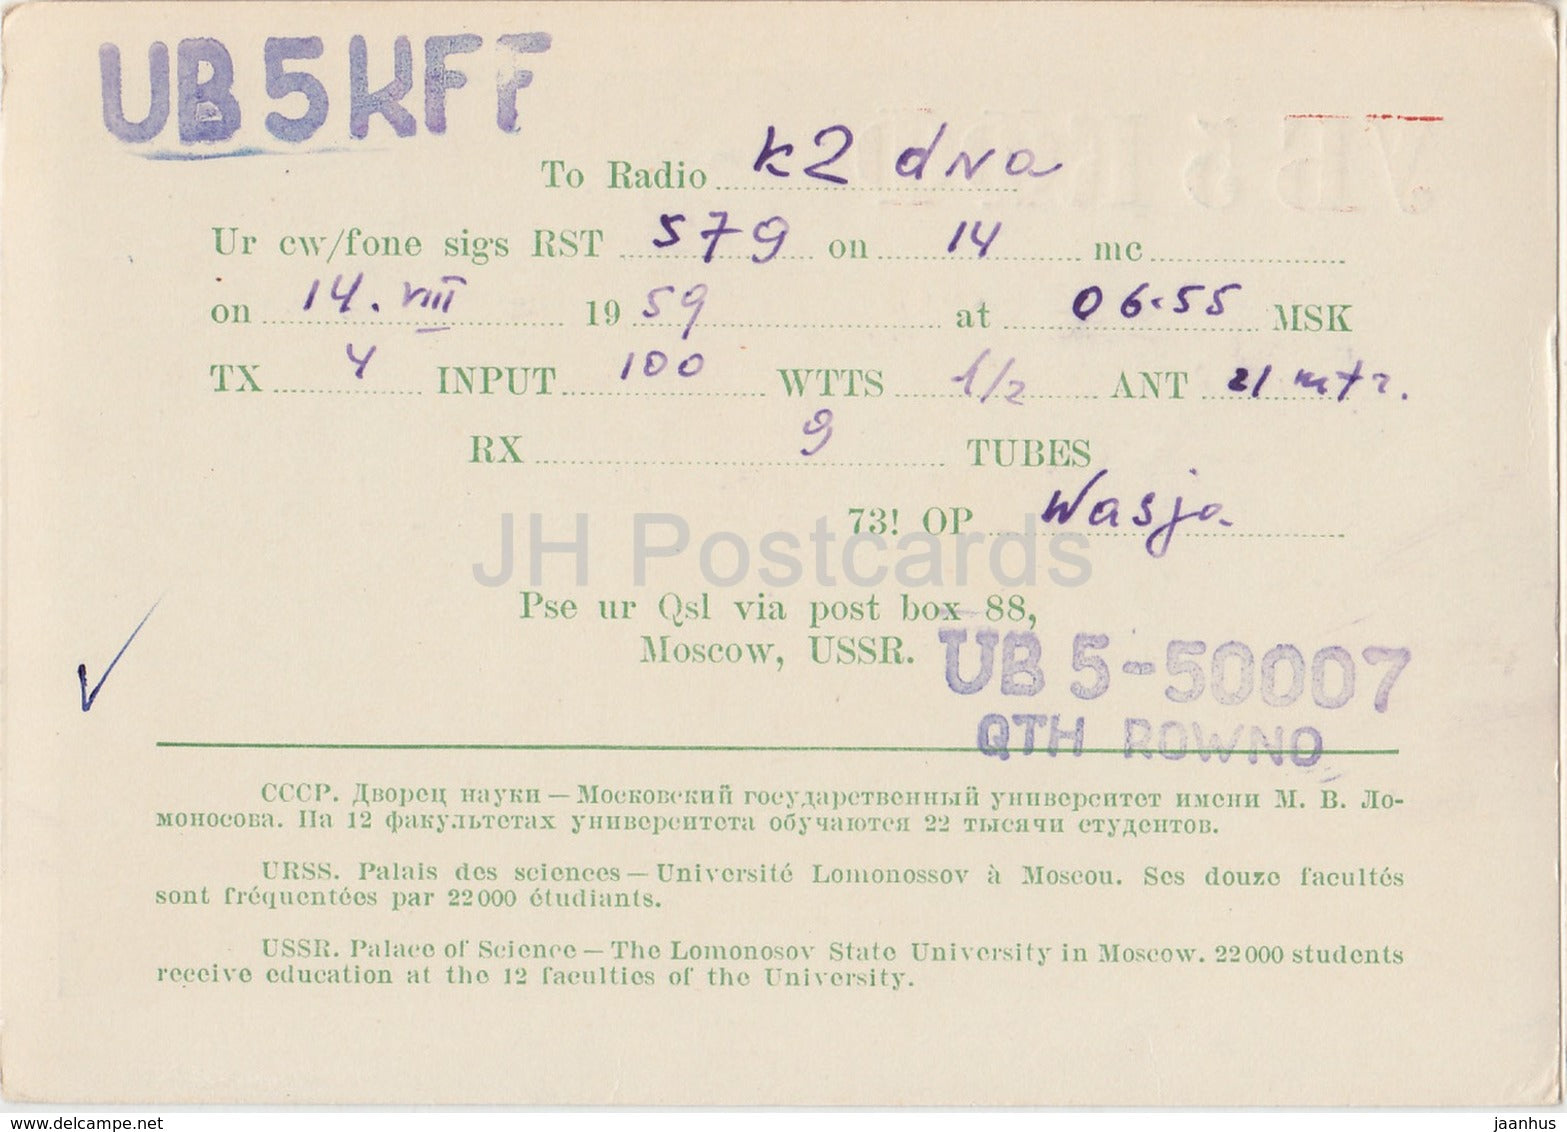 UB5KFF
To Radio k2 dna
Ur cw/fone sigs RST 579 on 14 mc
on 14. VIII 1959 at 06.55 MSK
TX 4 INPUT 100 WTTS 1/2 ANT 21 mtr.
RX 9 TUBES
73! OP Wasja
JH Postcards
Pse ur Qsl via post box 88,
Moscow, USSR.
UB 5-50007
QTH ROWNO
СССР. Дворец науки — Московский государственный университет имени М. В. Ло-
моносова. На 12 факультетах университета обучаются 22 тысячи студентов.
URSS. Palais des sciences — Université Lomonossov à Moscou. Ses douze facultés
sont fréquentées par 22 000 étudiants.
USSR. Palace of Science — The Lomonosov State University in Moscow. 22 000 students
receive education at the 12 faculties of the University.
www.delcampe.net
jaanhus